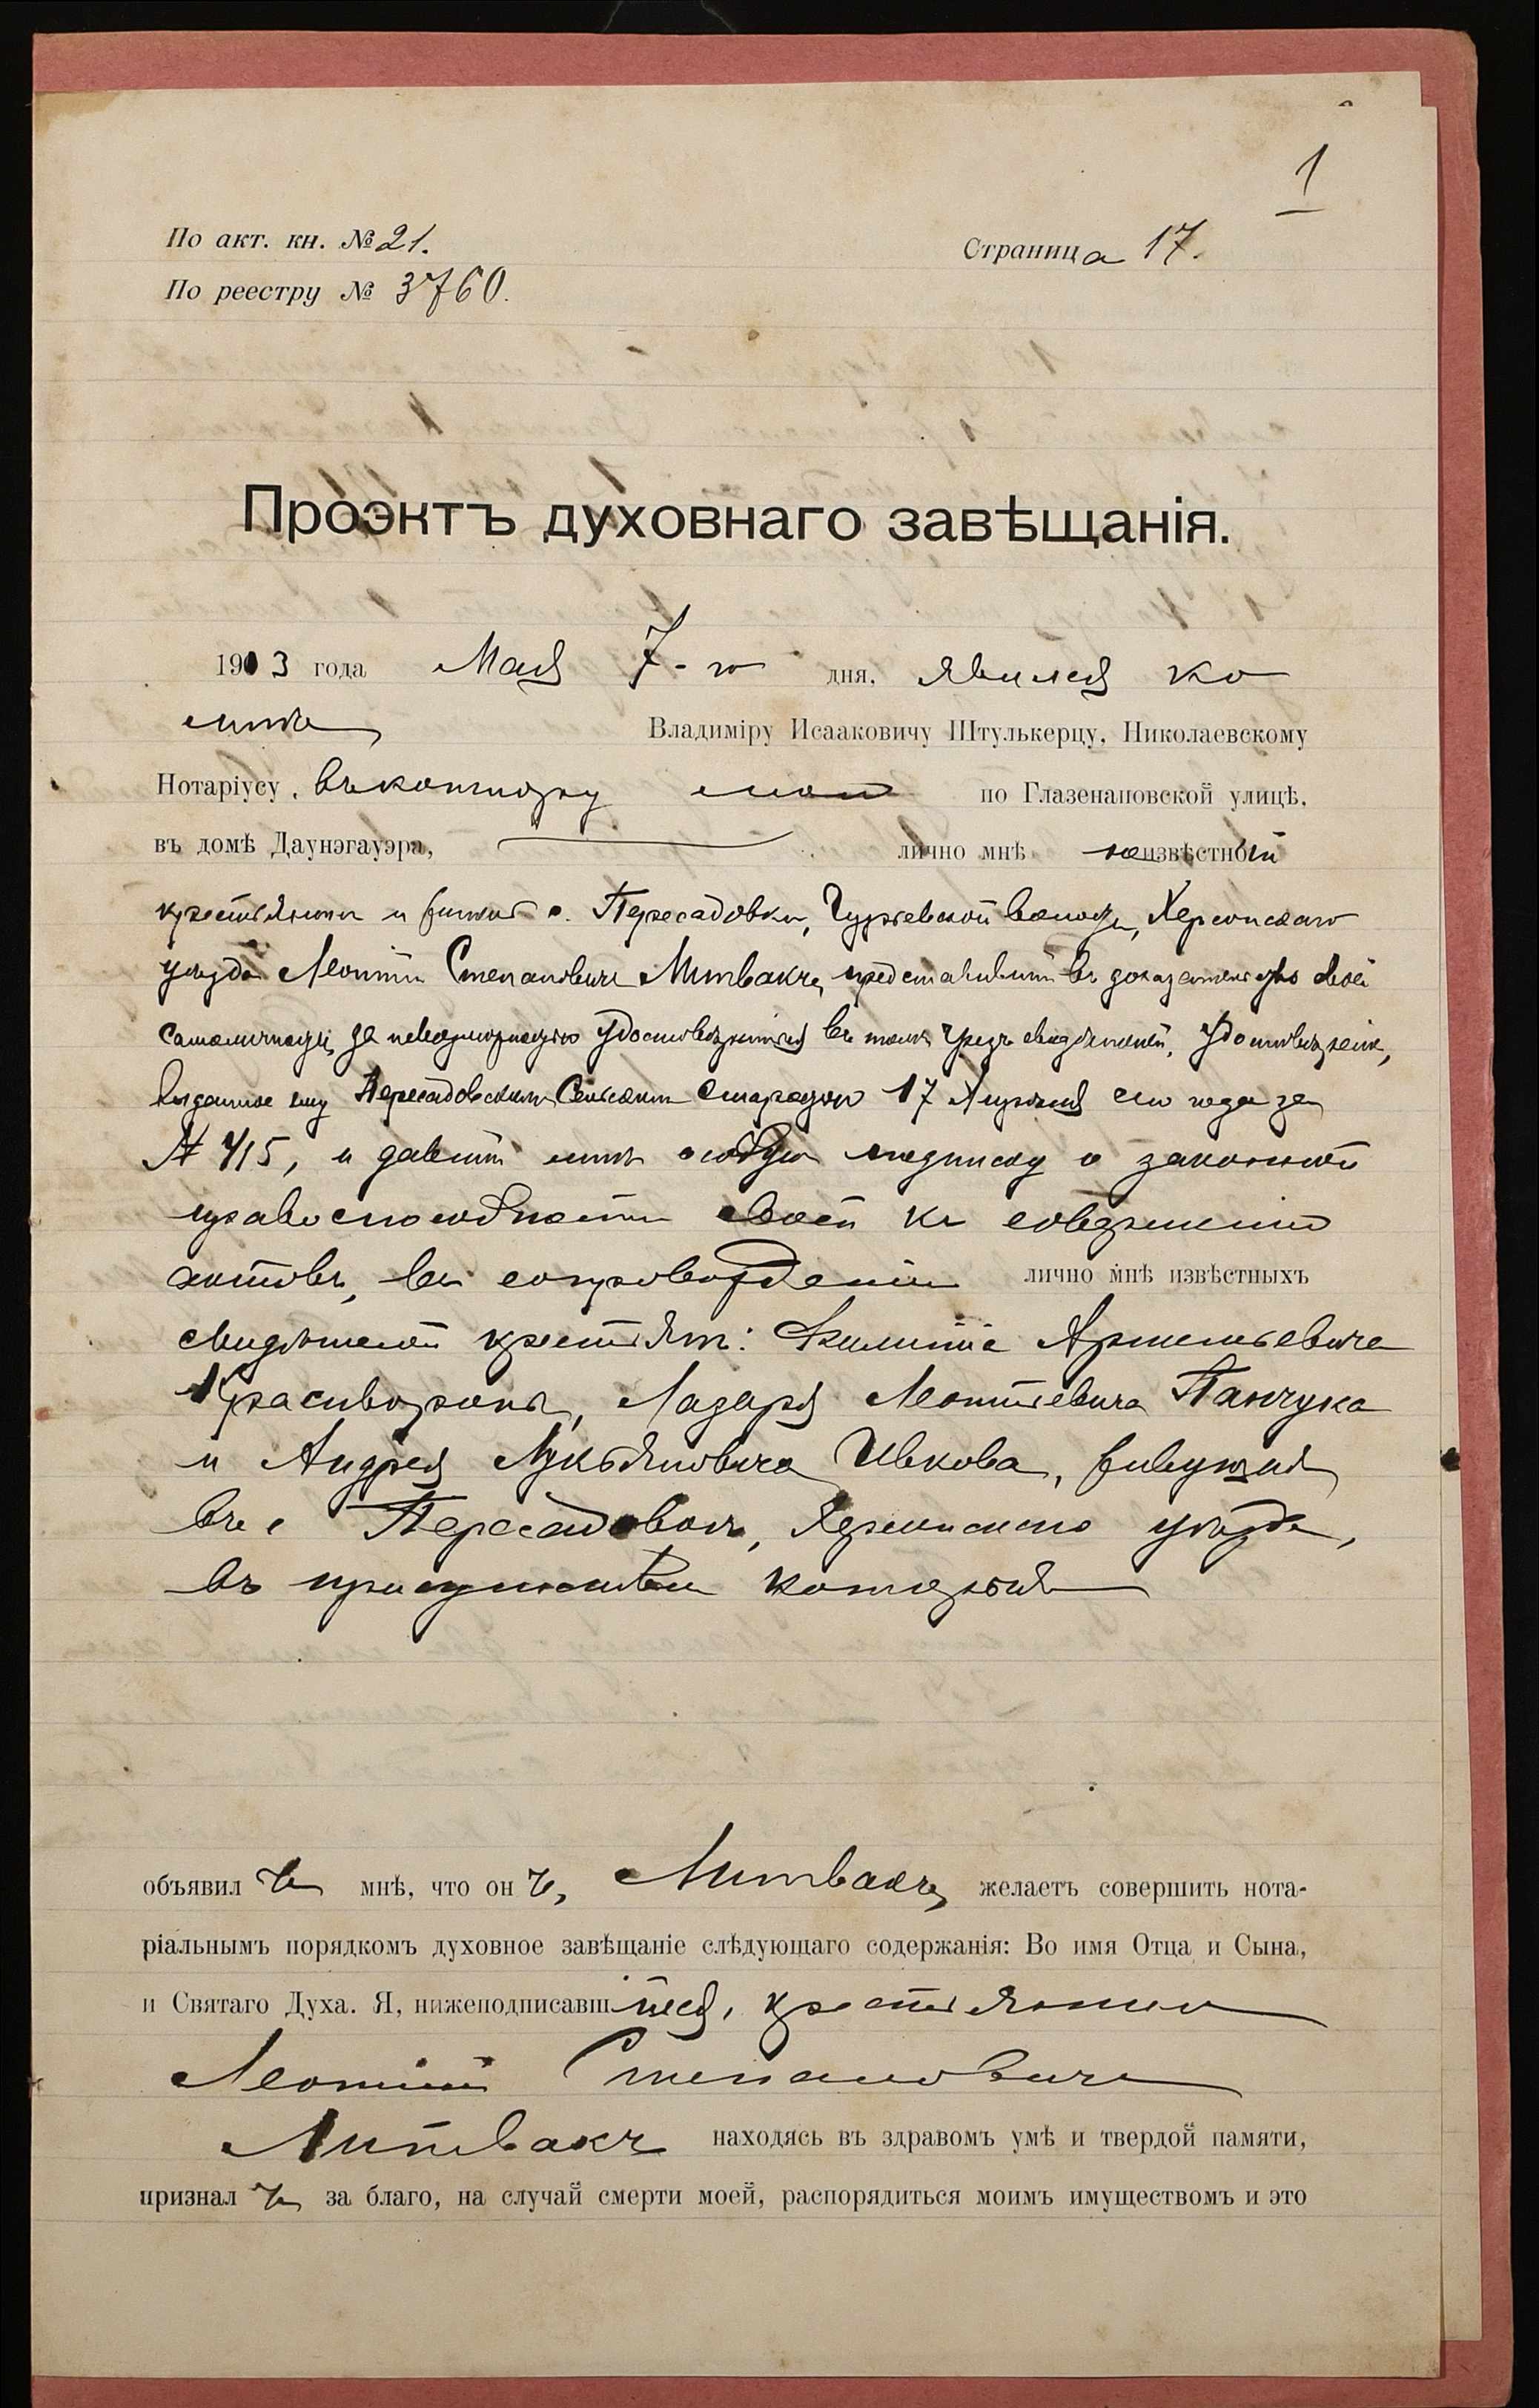 1
По акт. кн. № 21.
Страница 17.
По реестру № 3760.
Проэктъ духовнаго завѣщанія.
1903 года Мая 7-го дня, явился ко
мнѣ Владиміру Исааковичу Штулькерцу, Николаевскому
Нотаріусу, въ контору мою по Глазенаповской улицѣ,
въ домѣ Даунэгауэра, лично мнѣ неизвѣстный
крестьянинъ и житель с. Пересадовки, Гурьевской волости, Херсонскаго
уѣзда Леонтій Степановичъ Литвакъ, представившій въ доказательство своей
самоличности, за невозможностью удостовѣриться въ томъ чрезъ свидѣтелей, удостовѣреніе,
выданное ему Пересадовскимъ Сельскимъ Старостою 17 Апрѣля сего года за
№ 415, и давшій мнѣ особую подписку о законной
правоспособности своей къ совершенію
актовъ, въ сопровожденіи лично мнѣ извѣстныхъ
свидѣтелей крестьянъ: Артемьевича
Лазаря Леонтьевича Панчука
и Андрея Лукьяновича Ивкова, живущихъ
въ с. Пересадовкѣ, Херсонскаго уѣзда,
въ присутствіи которыхъ
объявилъ мнѣ, что онъ, Литвакъ, желаетъ совершить нота-
ріальнымъ порядкомъ духовное завѣщаніе слѣдующаго содержанія: Во имя Отца и Сына,
и Святаго Духа. Я, нижеподписавшійся, крестьянинъ
Леонтій Степановичъ
Литвакъ находясь въ здравомъ умѣ и твердой памяти,
призналъ за благо, на случай смерти моей, распорядиться моимъ имуществомъ и это